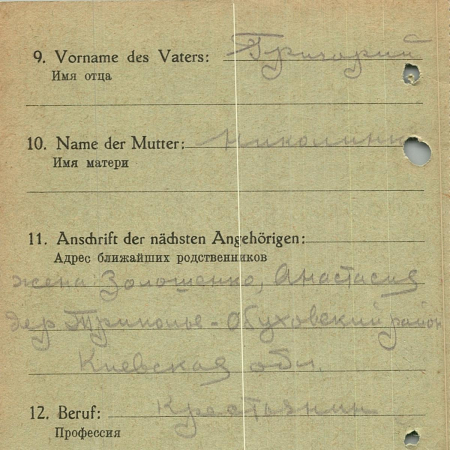 9. Vorname des Vaters: Григорий
Имя отца
10. Name der Mutter:
Имя матери
11. Anschrift der nächsten Angehörigen:
Адрес ближайших родственников
жена Золошенко, Анастасия
дер. Триполье - Обуховский район
Киевская обл.
12. Beruf: Крестьянин
Профессия